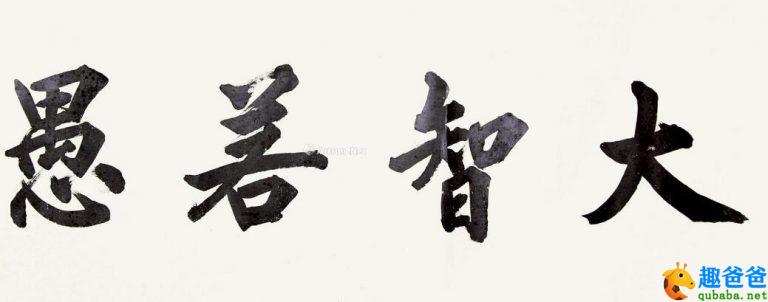 大智若愚
趣爸爸
qubaba.net